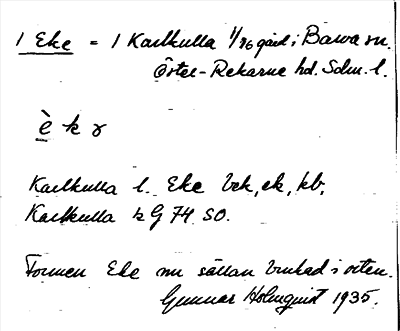 1 Eke = 1 Karlkulla 1/16 gård i Barva sn.
Öster-Rekarne hd. Sdm. l.
è k
Karlkulla l. Eke bek, ek, kb,
Karlkulla k G 74 SO.
Formen Eke nu sällan brukad i orten.
Gunnar Holmquist 1935.